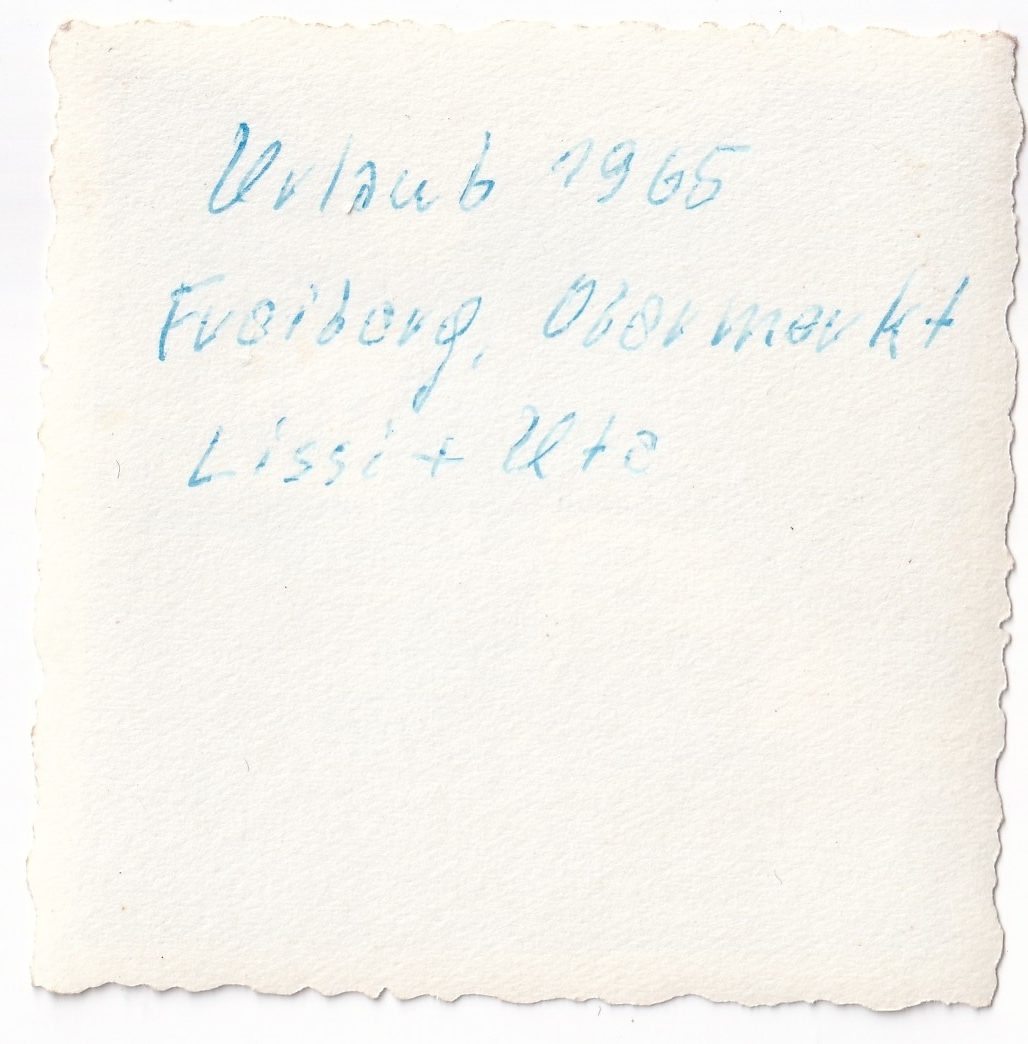 Urlaub 1965
Freiberg, Obermarkt
Lissi + Ute